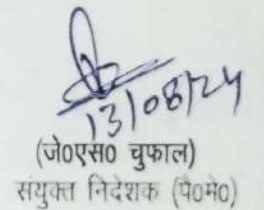 13/08/24
(जे0एस0 चुफाल)
संयुक्त निदेशक (पै0मे0)